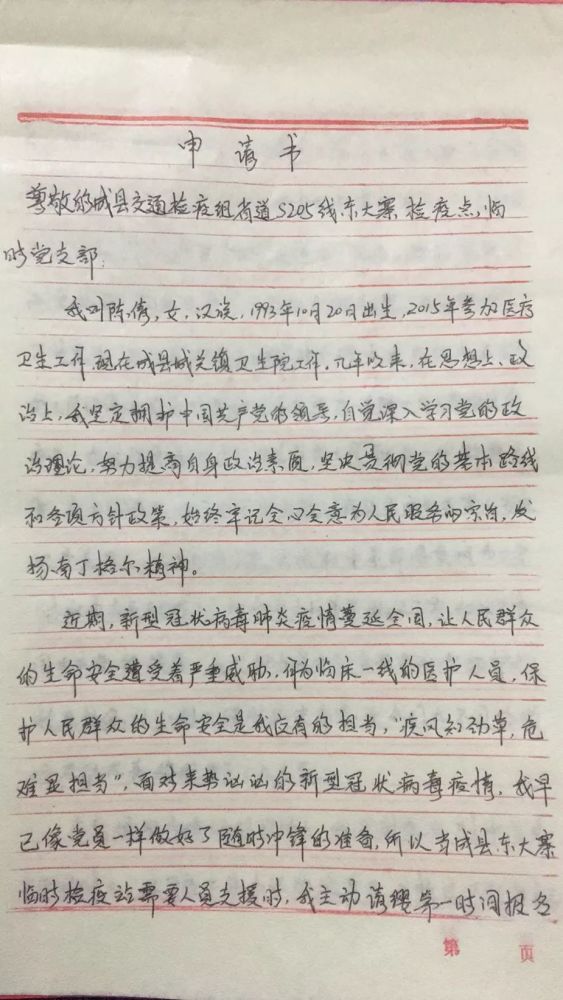 申请书
尊敬的成县交通检疫组省道S205线东大寨检疫点,临
时党支部:
我叫陈倩,女,汉族,1993年10月20日出生,2015年参加医疗
卫生工作,现在成县城关镇卫生院工作。几年以来,在思想上、政
治上,我坚定拥护中国共产党的领导,自觉深入学习党的政
治理论,努力提高自身政治素质,坚决贯彻党的基本路线
和各项方针政策,始终牢记全心全意为人民服务的宗旨,发
扬南丁格尔精神。
近期,新型冠状病毒肺炎疫情蔓延全国,让人民群众
的生命安全遭受着严重威胁,作为临床一线的医护人员,保
护人民群众的生命安全是我应有的担当,“疾风知劲草,危
难显担当”,面对来势汹汹的新型冠状病毒疫情,我早
已像党员一样做好了随时冲锋的准备,所以当成县东大寨
临时检疫站需要人员支援时,我主动请缨第一时间报名
第 页